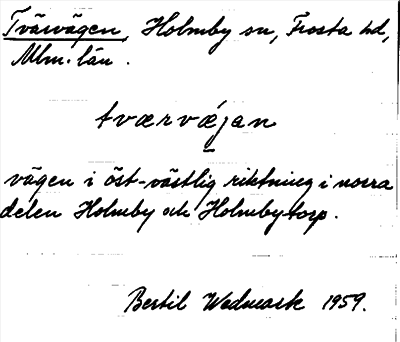 Tvärvägen, Holmby sn, Frosta hd,
Mlm. län.
tværvǽjan
vägen i öst-västlig riktning i norra
delen Holmby och Holmbytorp.
Bertil Wedmark 1959.